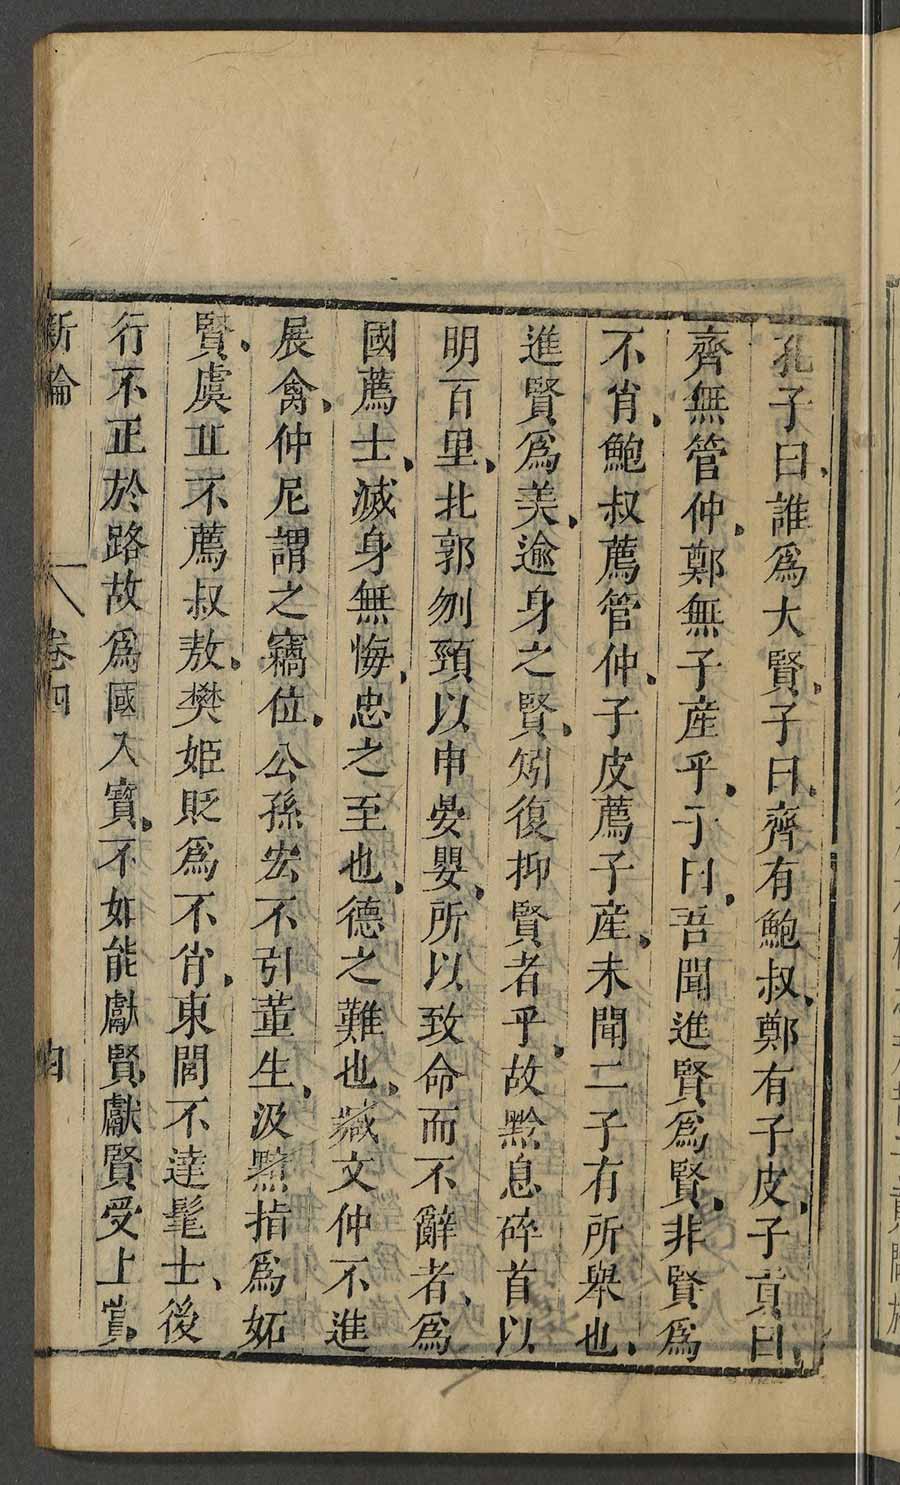 孔子曰誰爲大賢子曰齊有鮑叔鄭有子皮子貢曰
齊無管仲鄭無子產乎子曰吾聞進賢爲賢非賢爲
不肖鮑叔薦管仲子皮薦子產未聞二子有所舉也
進賢爲美逾身之賢矧復抑賢者乎故黔息碎首以
明百里北郭刎頸以申晏嬰所以致命而不辭者爲
國薦士滅身無悔忠之至也德之難也臧文仲不進
展禽仲尼謂之竊位公孫宏不引董生汲黯指爲妬
賢虞丘不薦叔敖樊姬貶爲不肖東閭不達髦士後
行不正於路故爲國入寳不如能獻賢獻賢受上賞
新論 卷四 四